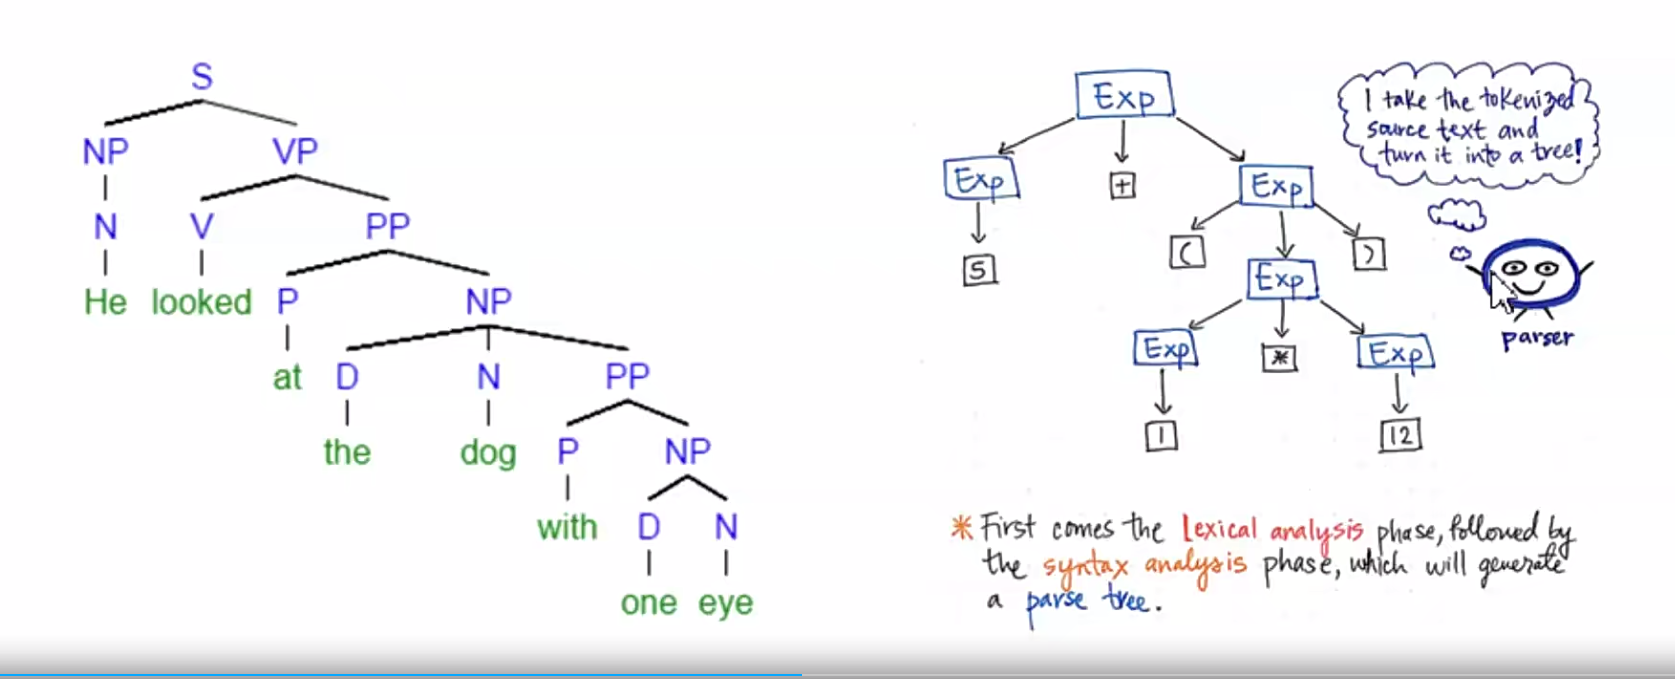 S
NP VP
N V PP
He looked P NP
at D N PP
the dog P NP
with D N
one eye
Exp
Exp + Exp
5 ( Exp )
Exp * Exp
1 12
I take the tokenized
source text and
turn it into a tree!
parser
* First comes the Lexical analysis phase, followed by
the syntax analysis phase, which will generate
a parse tree.